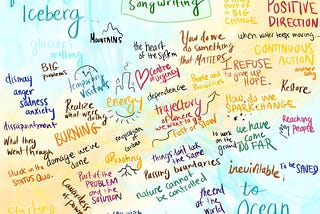 Iceberg
Songwriting
part of a
BIG
CHANGE
POSITIVE
DIRECTION
glaciers
calving
Mountains
the heart of
the system
You do we
do something
that MATTERS
when water keeps moving...
CONTINUOUS
ACTION
BIG
problems
temporary
visitors
Centre
urgency
People and
I REFUSE
to give up
HOPE.
dismay
anger
sadness
anxiety
dependence
Restore
energy
Realize
what we're
doing
trajectory
of where
we want to go
HOW do WE
SPARK CHANGE
disappointment
Fast or Slow
reaching
People
What they
went through
BURNING
to work
on the
ground
we have
come
SO FAR
damage we've
done
uprooting
things don't look
the same
Passing boundaries
inevitable
to be SAVED
Stuck in the
STATUS QUO.
Part of the
PROBLEM
and the
SOLUTION
nature cannot
be controlled
to
Ocean
Consequences
the end
of the
World
Starting